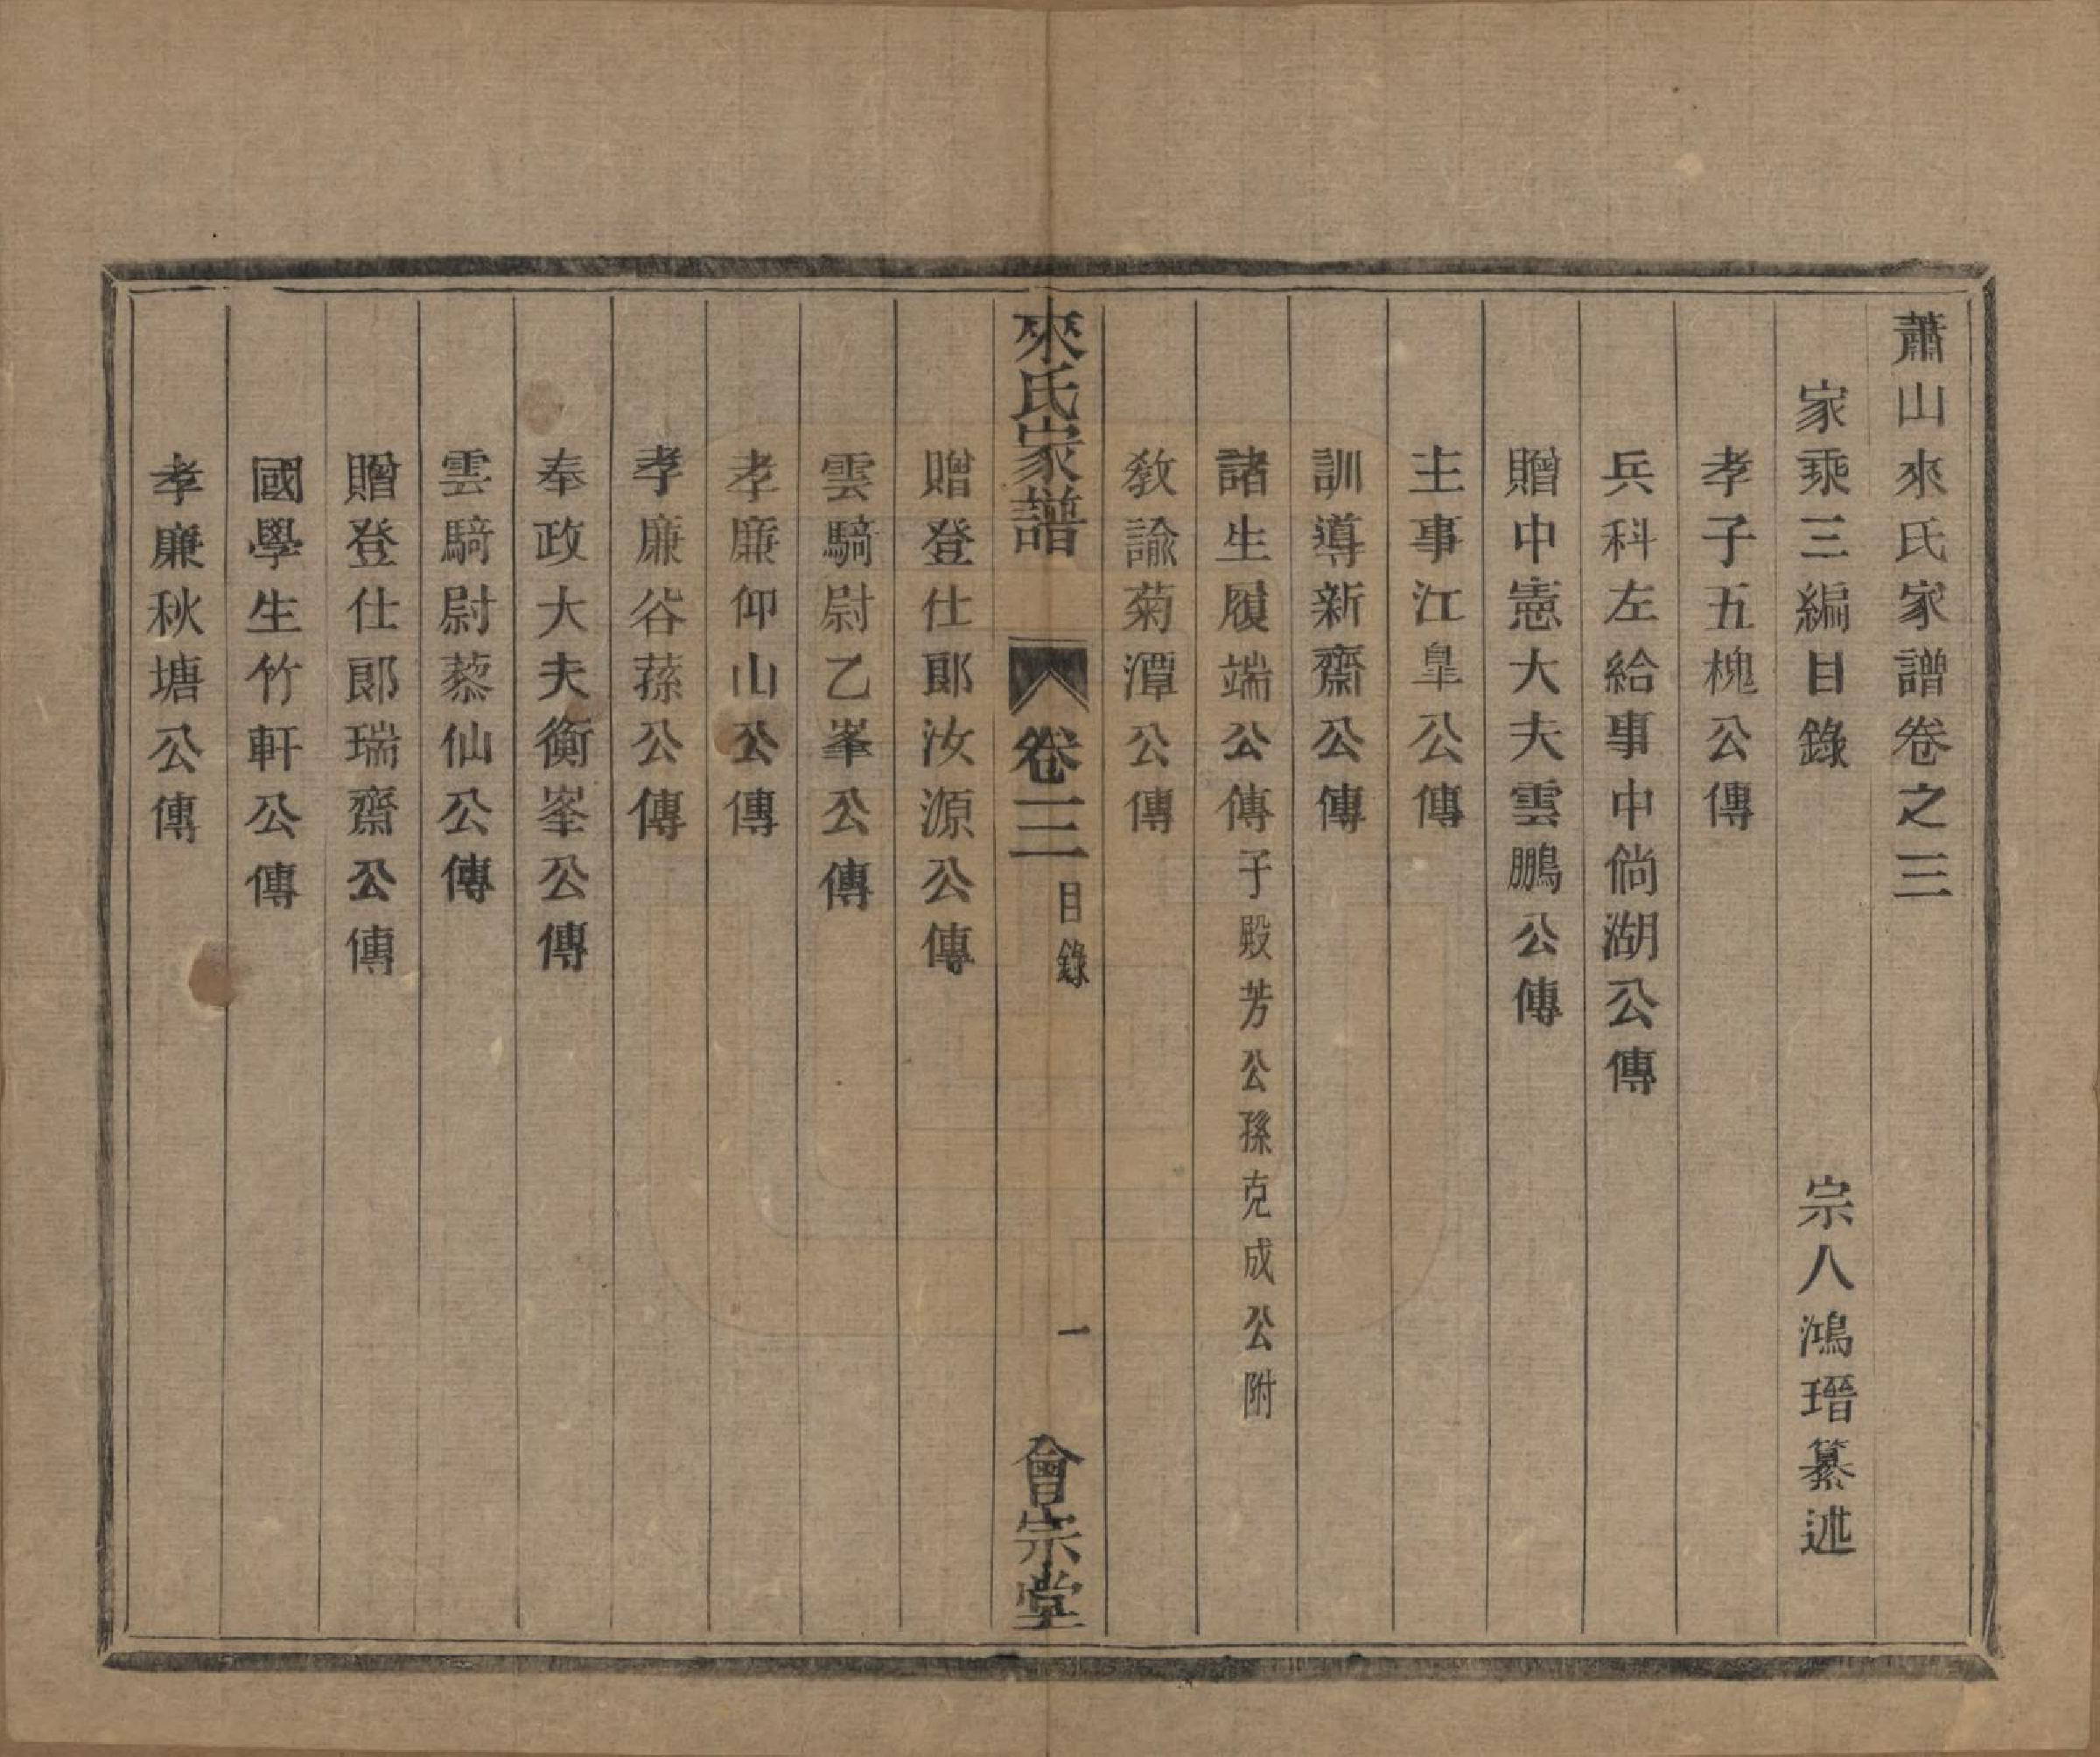 蕭山來氏家譜卷之三
家乘三編目錄 宗人鴻瑨纂述
孝子五槐公傳
兵科左給事中倘湖公傳
贈中憲大夫雲鵬公傳
主事江臯公傳
訓導新齋公傳
諸生履端公傳子殿芳公孫克成公附
教諭菊潭公傳
來氏家譜 卷三 目錄 一 會宗堂
贈登仕郎汝源公傳
雲騎尉乙峯公傳
孝廉仰山公傳
孝廉谷蓀公傳
奉政大夫衡峯公傳
雲騎尉藜仙公傳
贈登仕郎瑞齋公傳
國學生竹軒公傳
孝廉秋塘公傳